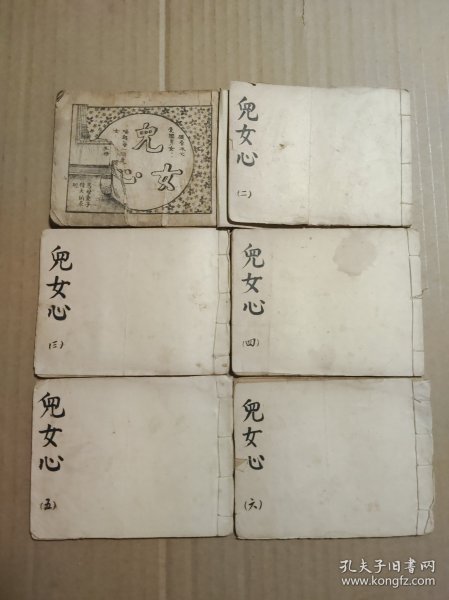 兒女心
兒女心
(二)
兒女心
(三)
兒女心
(四)
兒女心
(五)
兒女心
(六)
孔夫子旧书网
www.kongfz.com